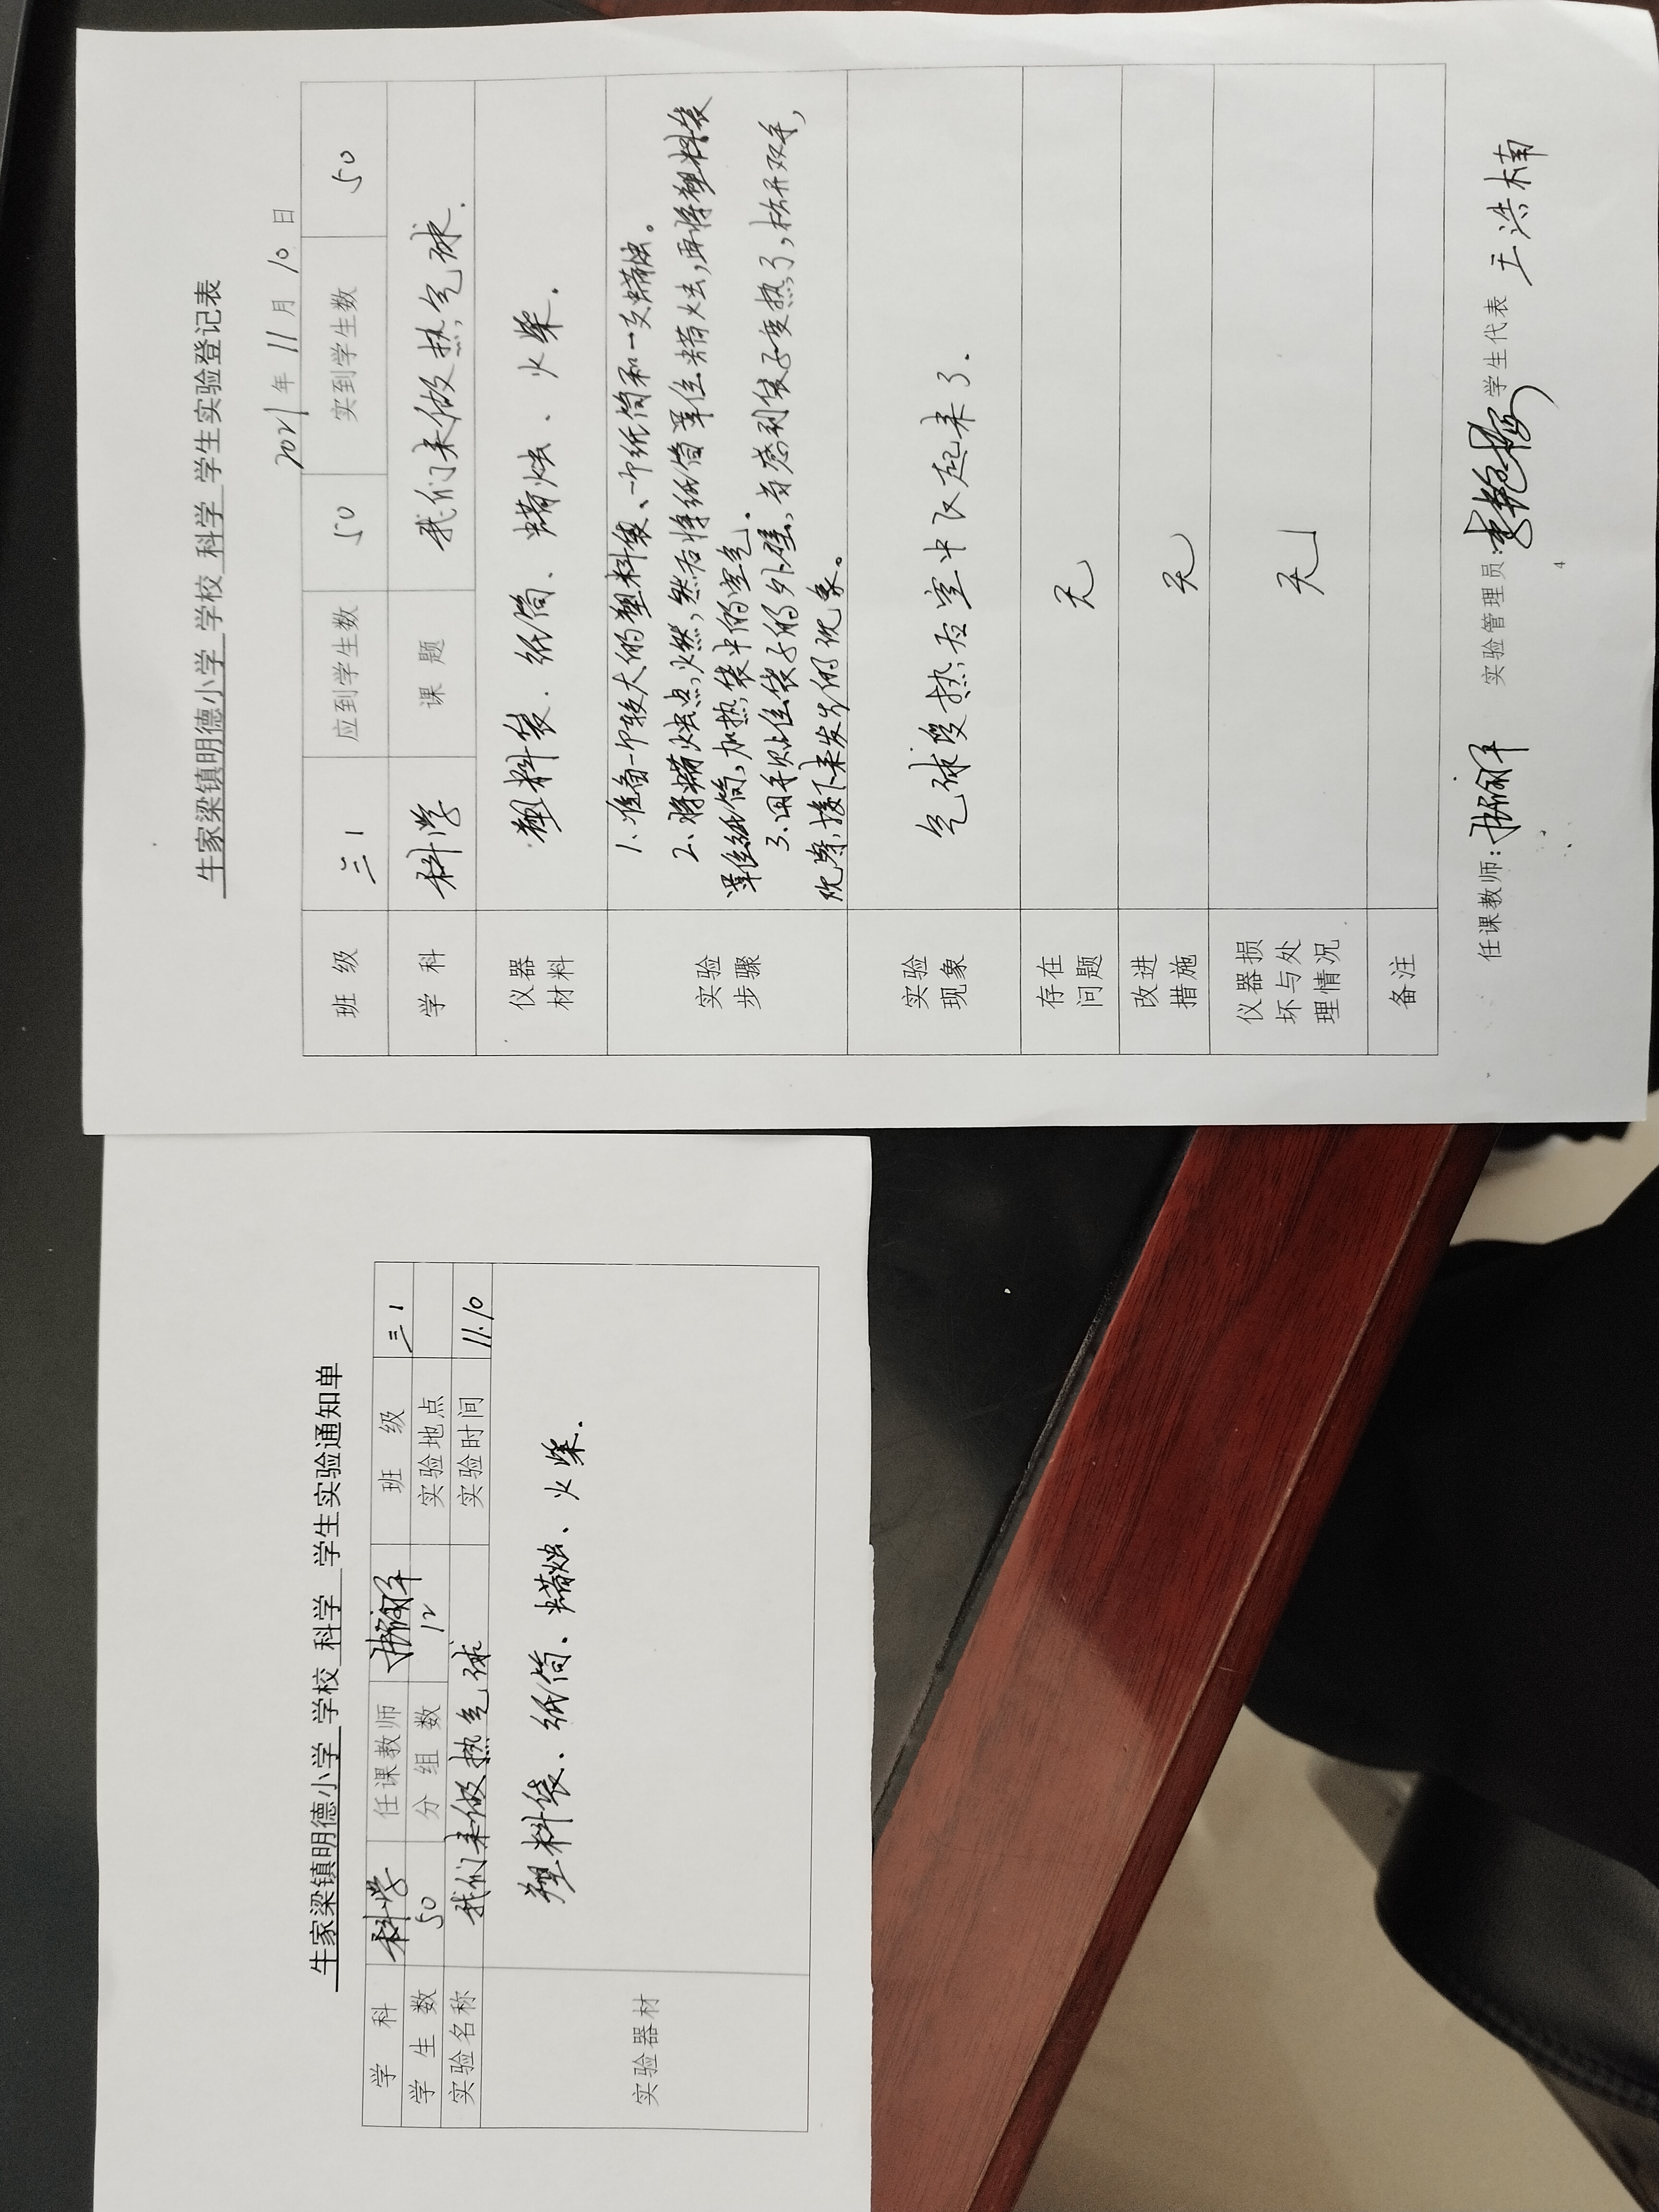 牛家梁镇明德小学 学校 科学 学生实验通知单
学 科 科学 任课教师 班 级 三1
学 生 数 50 分 组 数 12 实验地点
实验名称 我们来做热气球 实验时间 11.10
实验器材 塑料袋、纸筒、蜡烛、火柴.
牛家梁镇明德小学 学校 科学 学生实验登记表
2021年 11月 10日
班 级 三1 应到学生数 50 实到学生数 50
学 科 科学 课 题 我们来做热气球.
仪器材料 塑料袋. 纸筒、蜡烛、火柴.
实验步骤
1.准备一个较大的塑料袋、一个纸筒和一支蜡烛。
2.将蜡烛点火燃,然后将纸筒罩住蜡烛,再将塑料袋
罩住纸筒,加热袋中的空气.
3.用手贴住袋子的外壁,若感到袋子变热了,松开双手,
观察,接下来发生的现象。
实验现象 气球受热后空中飞起来了.
存在问题 无
改进措施 无
仪器损坏与处理情况 无
备注
任课教师: 实验管理员: 学生代表 王浩楠
4